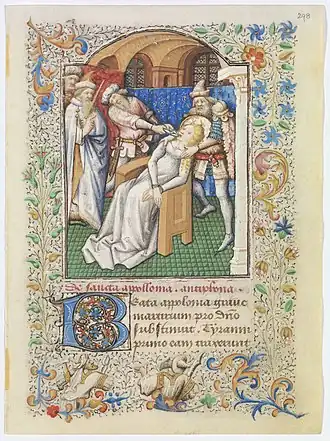 298
De sancta appollonia. antiphona.
Beata appolonia grave
martirium pro dno
sustinuit. Tyranni
primo eam traxerunt